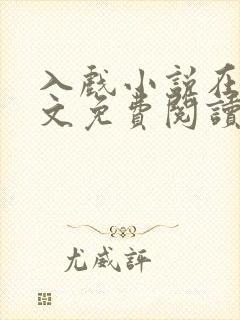 入戲小說在
文免費閱讀
尤威評